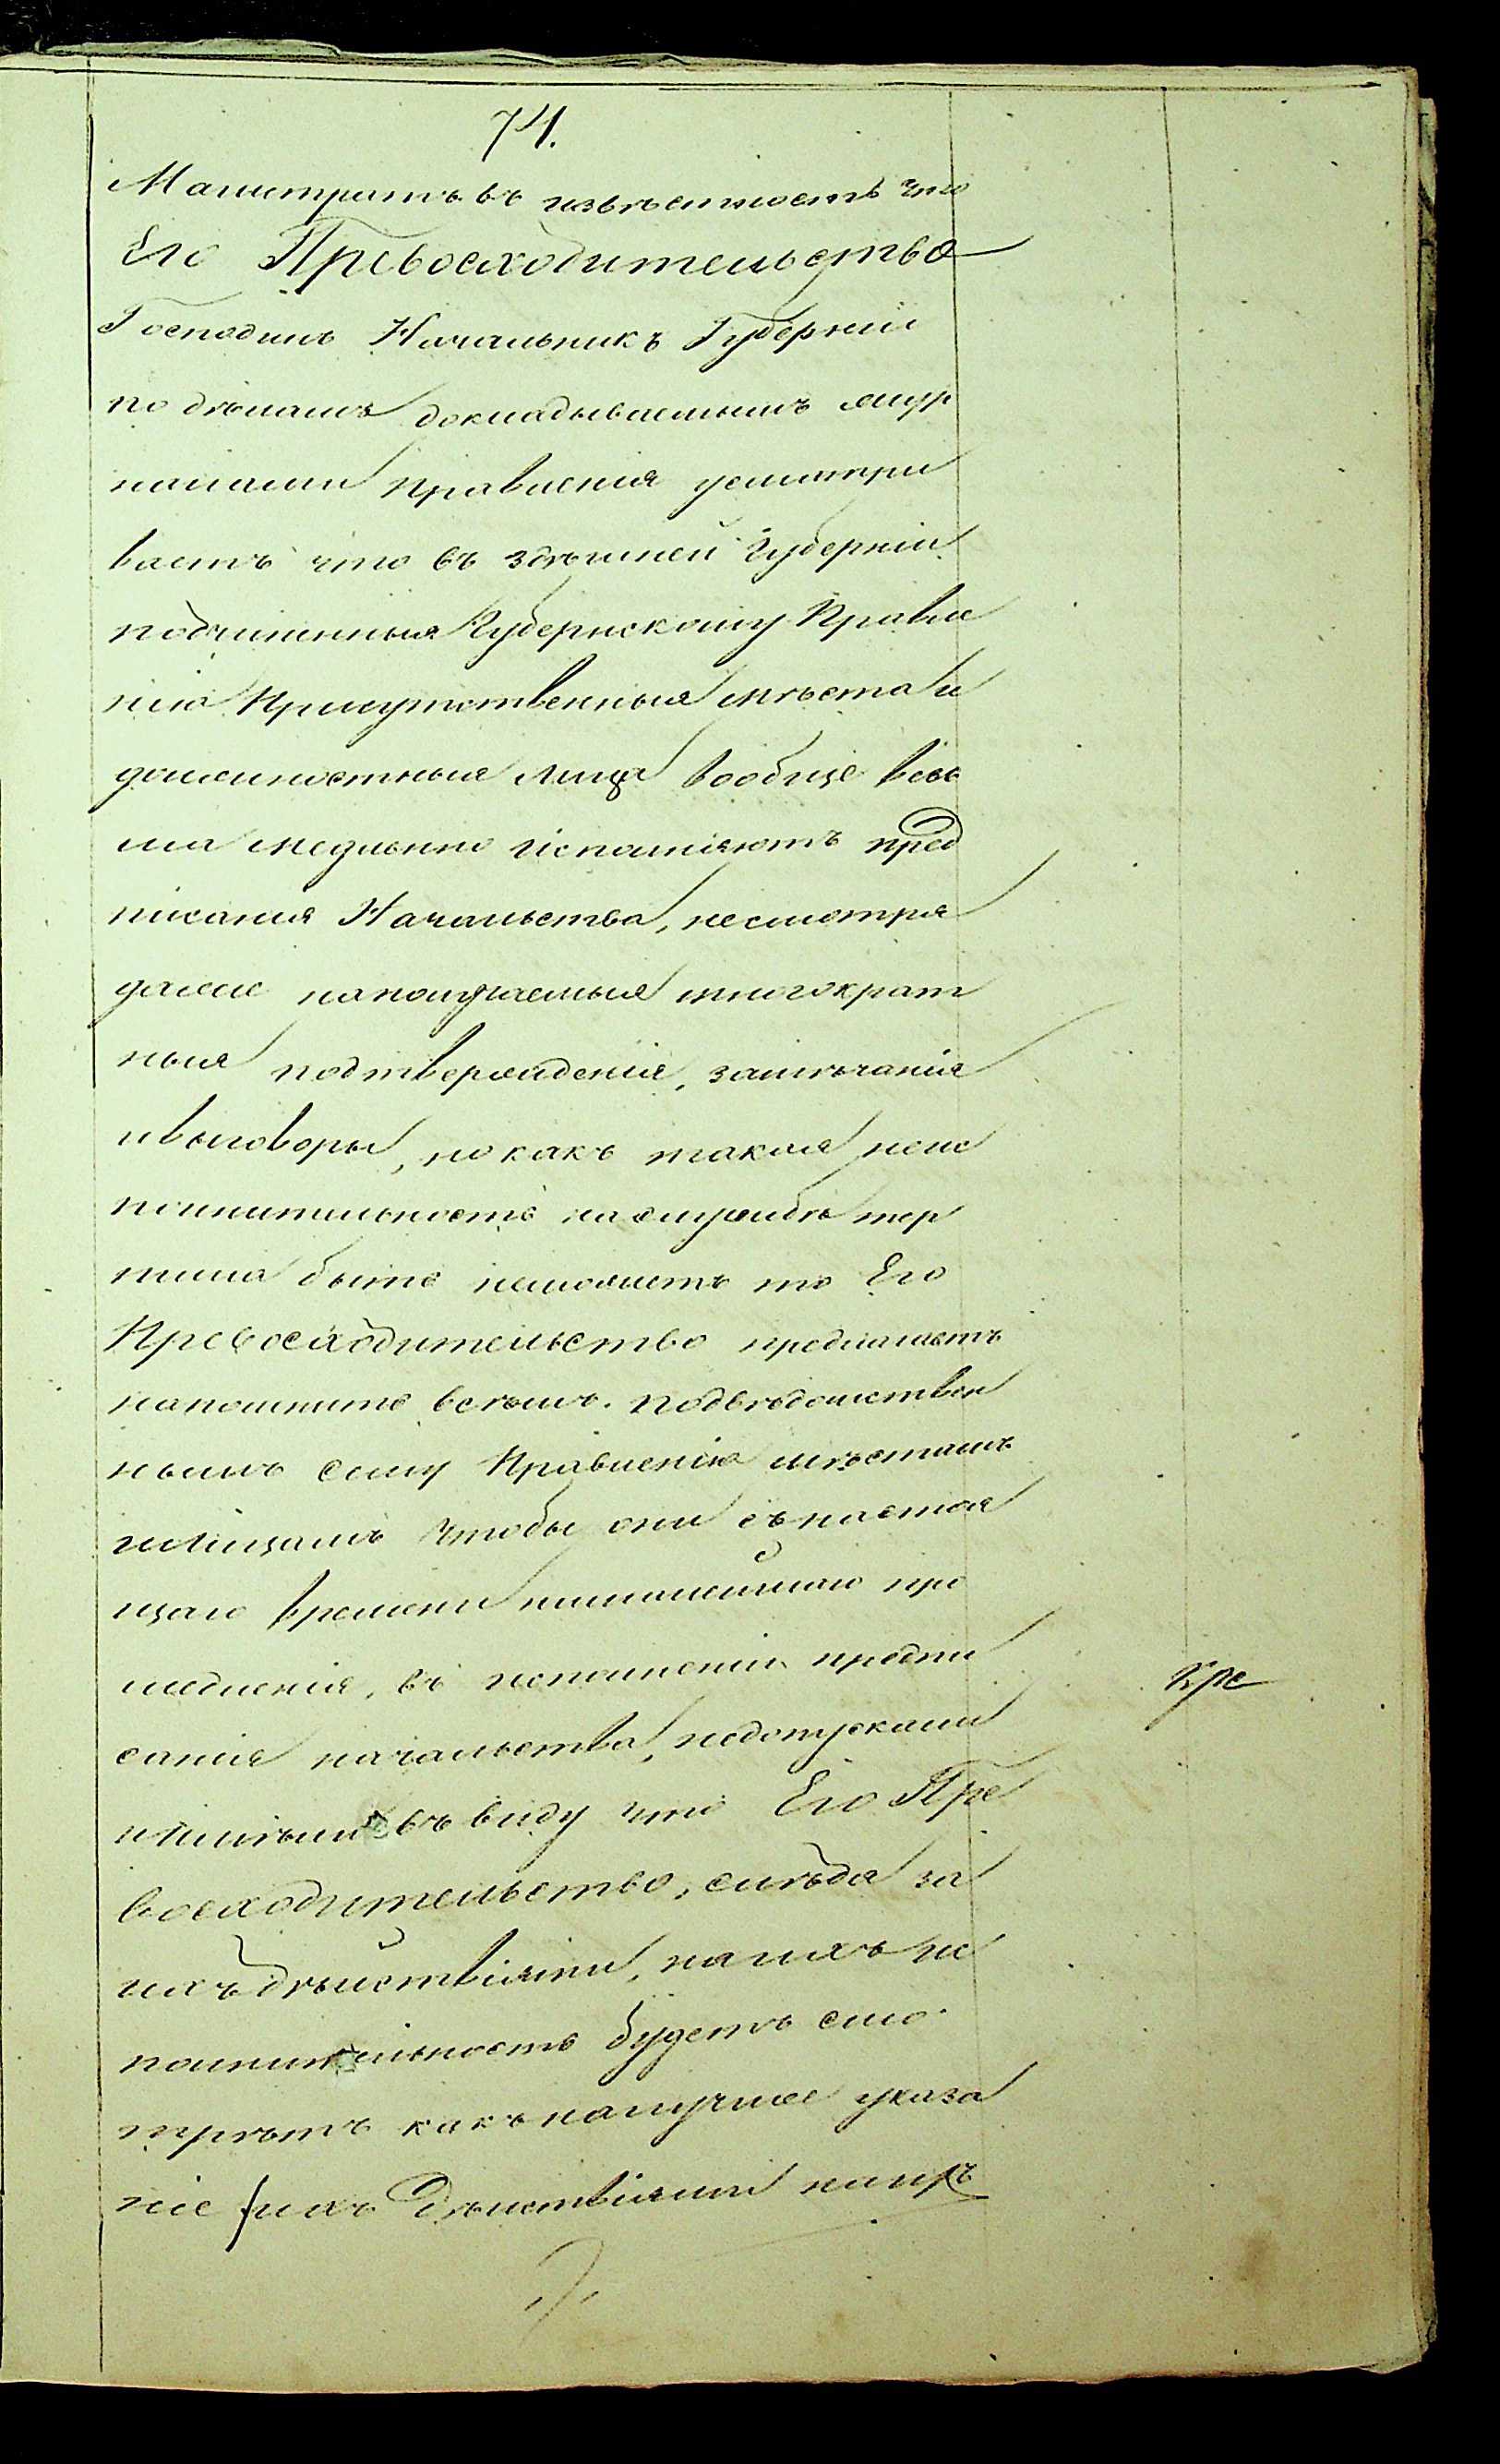 74.
Магистратъ въ извѣстность что
Его Превосходительство
Господинъ Начальникъ Губерніи
по дѣламъ докладываемымъ жур
налами Правленія усматри
ваетъ что въ здѣшней Губерніи
подчиненныя Губернскому Правле
нію Присутственныя мѣста и
должностныя лица вообще весь
ма медленно исполняютъ пред
писанія Начальства, несмотря
даже наполучаемыя многократ
ныя подтвержденія, замѣчанія
ивыговоры, но какъ такая неис
полнительность наслужбѣ тер
пима быть неможетъ то Его
Превосходительство предлагаетъ
напомнить всѣмъ подвѣдомствен
нымъ сему Правленію мѣстамъ
илицамъ чтобы они съ настоя
щаго времени нималейшаго про
медленія, въ исполненіи предпи
санія начальства, недопускали
иимѣли въ виду что Его Пре
восходительство, слѣдя за
ихъ дѣйствіями, на ихъ не
полнительность будетъ смо
трѣть какъ на лучшее указа
ніе ихъ Дѣйствіями напр
Кре